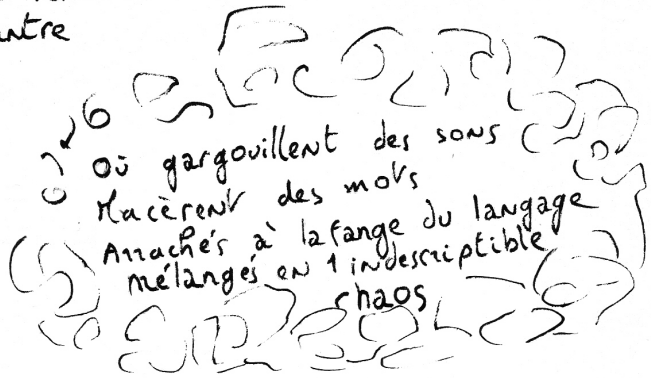 où gargouillent des sons
Macèrent des mots
Arrachés à la fange du langage
mélangés en 1 indescriptible
chaos